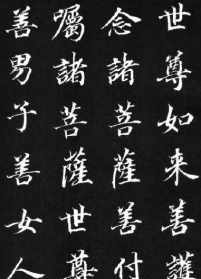 世尊如来善護
念諸菩薩善付
嘱諸菩薩世尊
善男子善女人